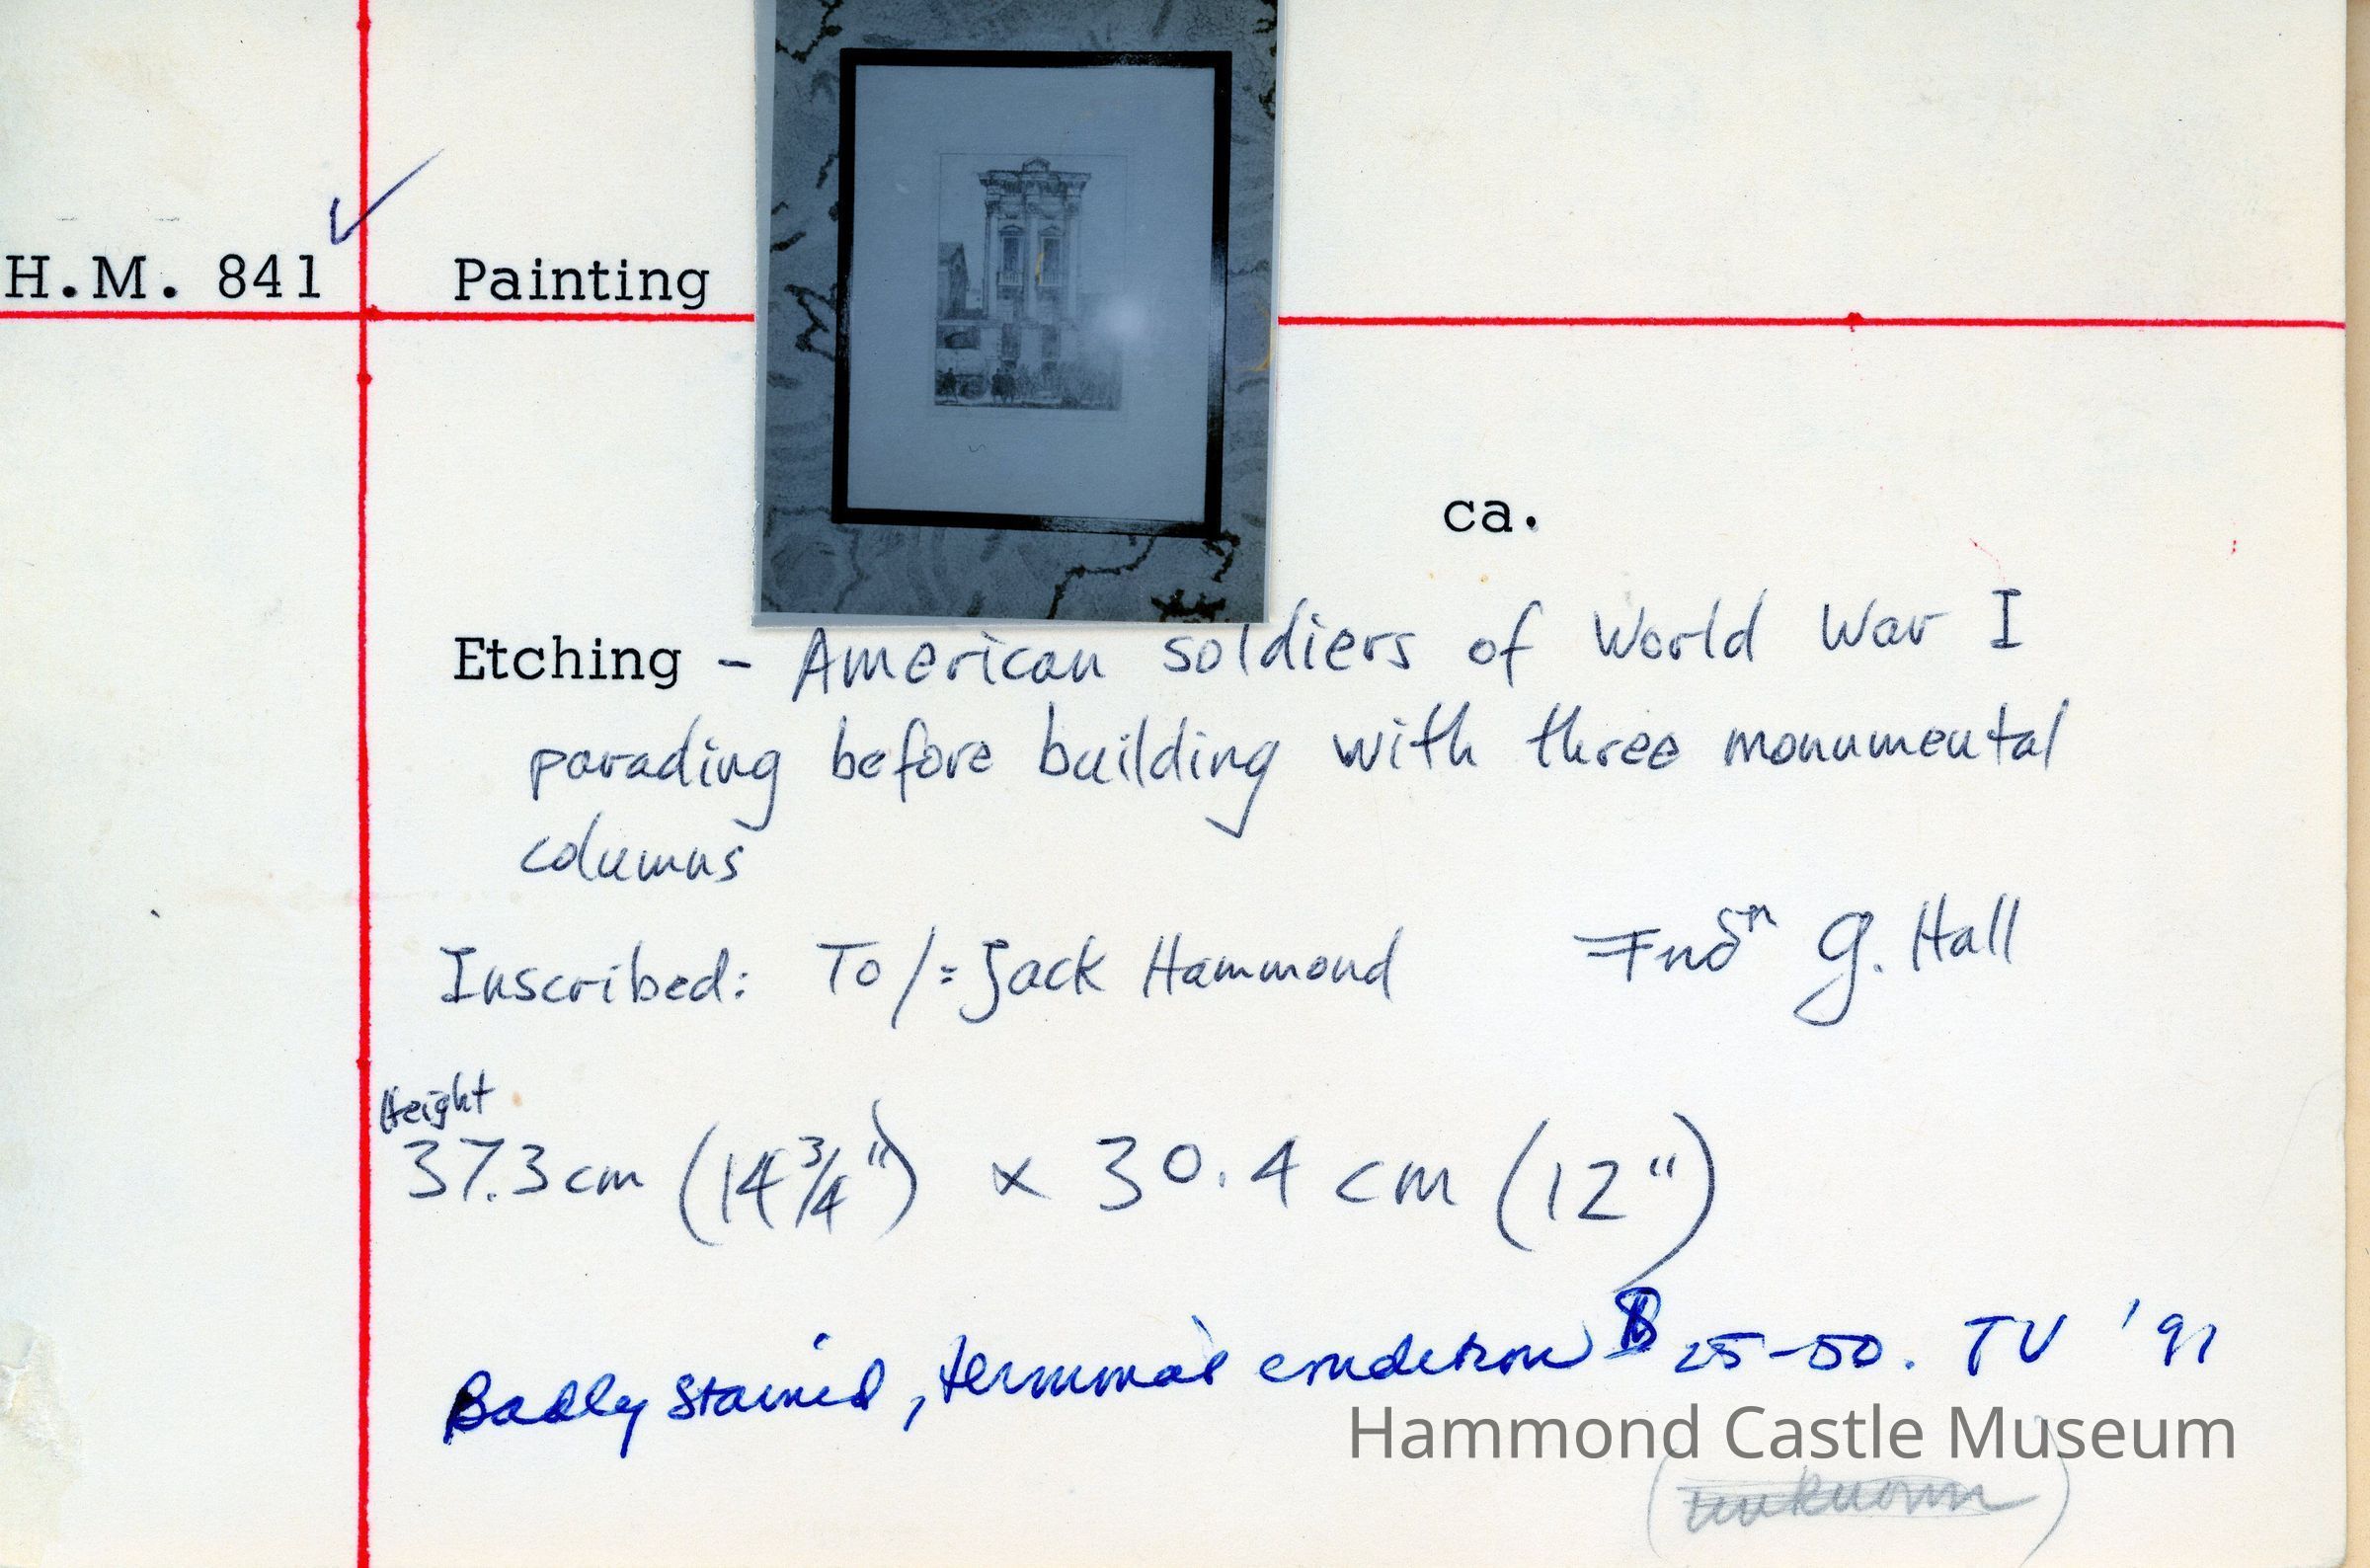 H.M. 841 Painting
ca.
Etching - American soldiers of World War I
parading before building with three monumental
columns
Inscribed: To/= Jack Hammond G. Hall
Height
37.3 cm (14 3/4") x 30.4 cm (12")
Badly stained, terminal condition $ 25-50. TV '91
Hammond Castle Museum
(unknown)